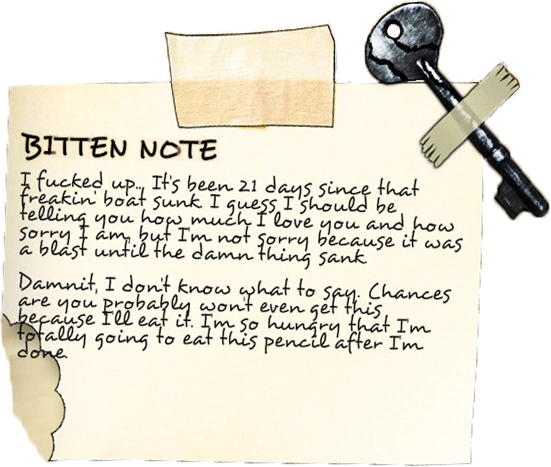 BITTEN NOTE
I fucked up... It's been 21 days since that
freakin' boat sunk. I guess I should be
telling you how much I love you and how
sorry I am, but I'm not sorry because it was
a blast until the damn thing sank.
Damnit, I don't know what to say. Chances
are you probably won't even get this
because I'll eat it. I'm so hungry that I'm
totally going to eat this pencil after I'm
done.